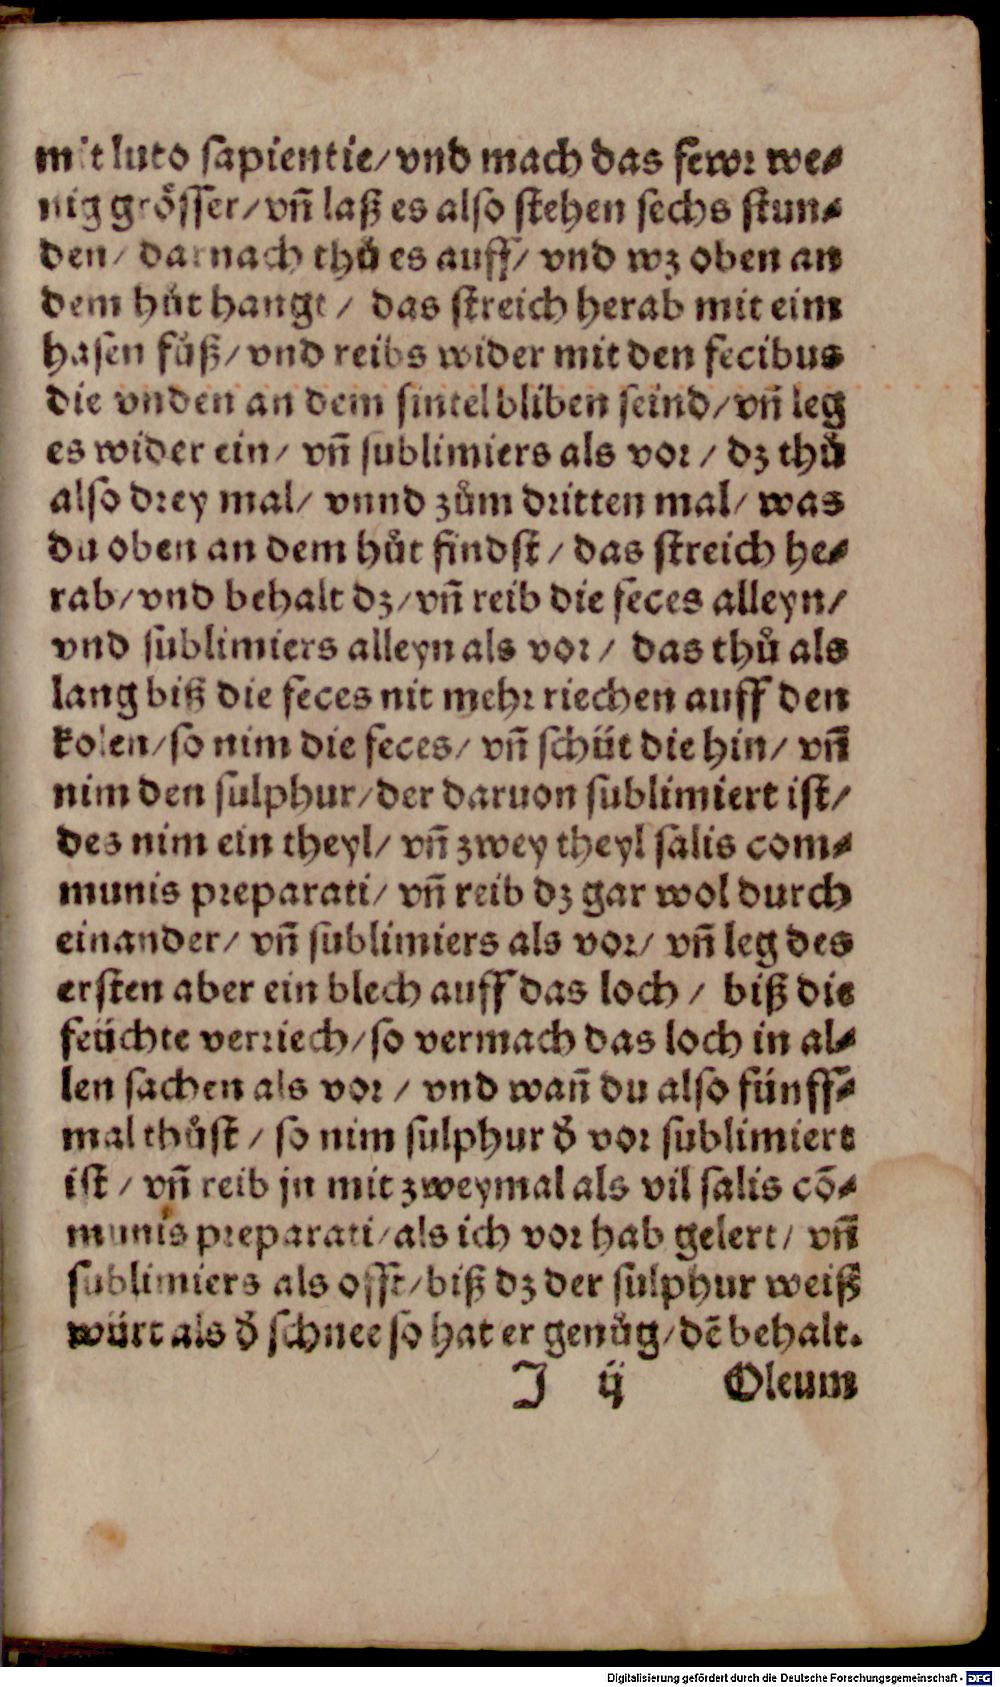 mit luto sapientie/ vnd mach das fewr we-
nig grösser/ vñ laß es also stehen sechs stun-
den/ darnach thů es auff/ vnd wz oben an
dem hůt hangt/ das streich herab mit eim
hasen fůß/ vnd reibs wider mit den fecibus
die vnden an dem sintel bliben seind/ vñ leg
es wider ein/ vñ sublimiers als vor/ dz thů
also drey mal/ vnnd zům dritten mal/ was
du oben an dem hůt findst/ das streich he-
rab/ vnd behalt dz/ vñ reib die feces alleyn/
vnd sublimiers alleyn als vor/ das thů als
lang biß die feces nit mehr riechen auff den
kolen/ so nim die feces/ vñ schüt die hin/ vñ
nim den sulphur/ der daruon sublimiert ist/
des nim ein theyl/ vñ zwey theyl salis com-
munis preparati/ vñ reib dz gar wol durch
einander/ vñ sublimiers als vor/ vñ leg des
ersten aber ein blech auff das loch/ biß die
feüchte verriech/ so vermach das loch in al-
len sachen als vor/ vnd wañ du also fünff-
mal thůst/ so nim sulphur d̓ vor sublimiert
ist/ vñ reib jn mit zweymal als vil salis cõ-
munis preparati/ als ich vor hab gelert/ vñ
sublimiers als offt/ biß dz der sulphur weiß
würt als d̓ schnee so hat er genůg/ dẽ behalt.
J ij Oleum
Digitalisierung gefördert durch die Deutsche Forschungsgemeinschaft - DFG